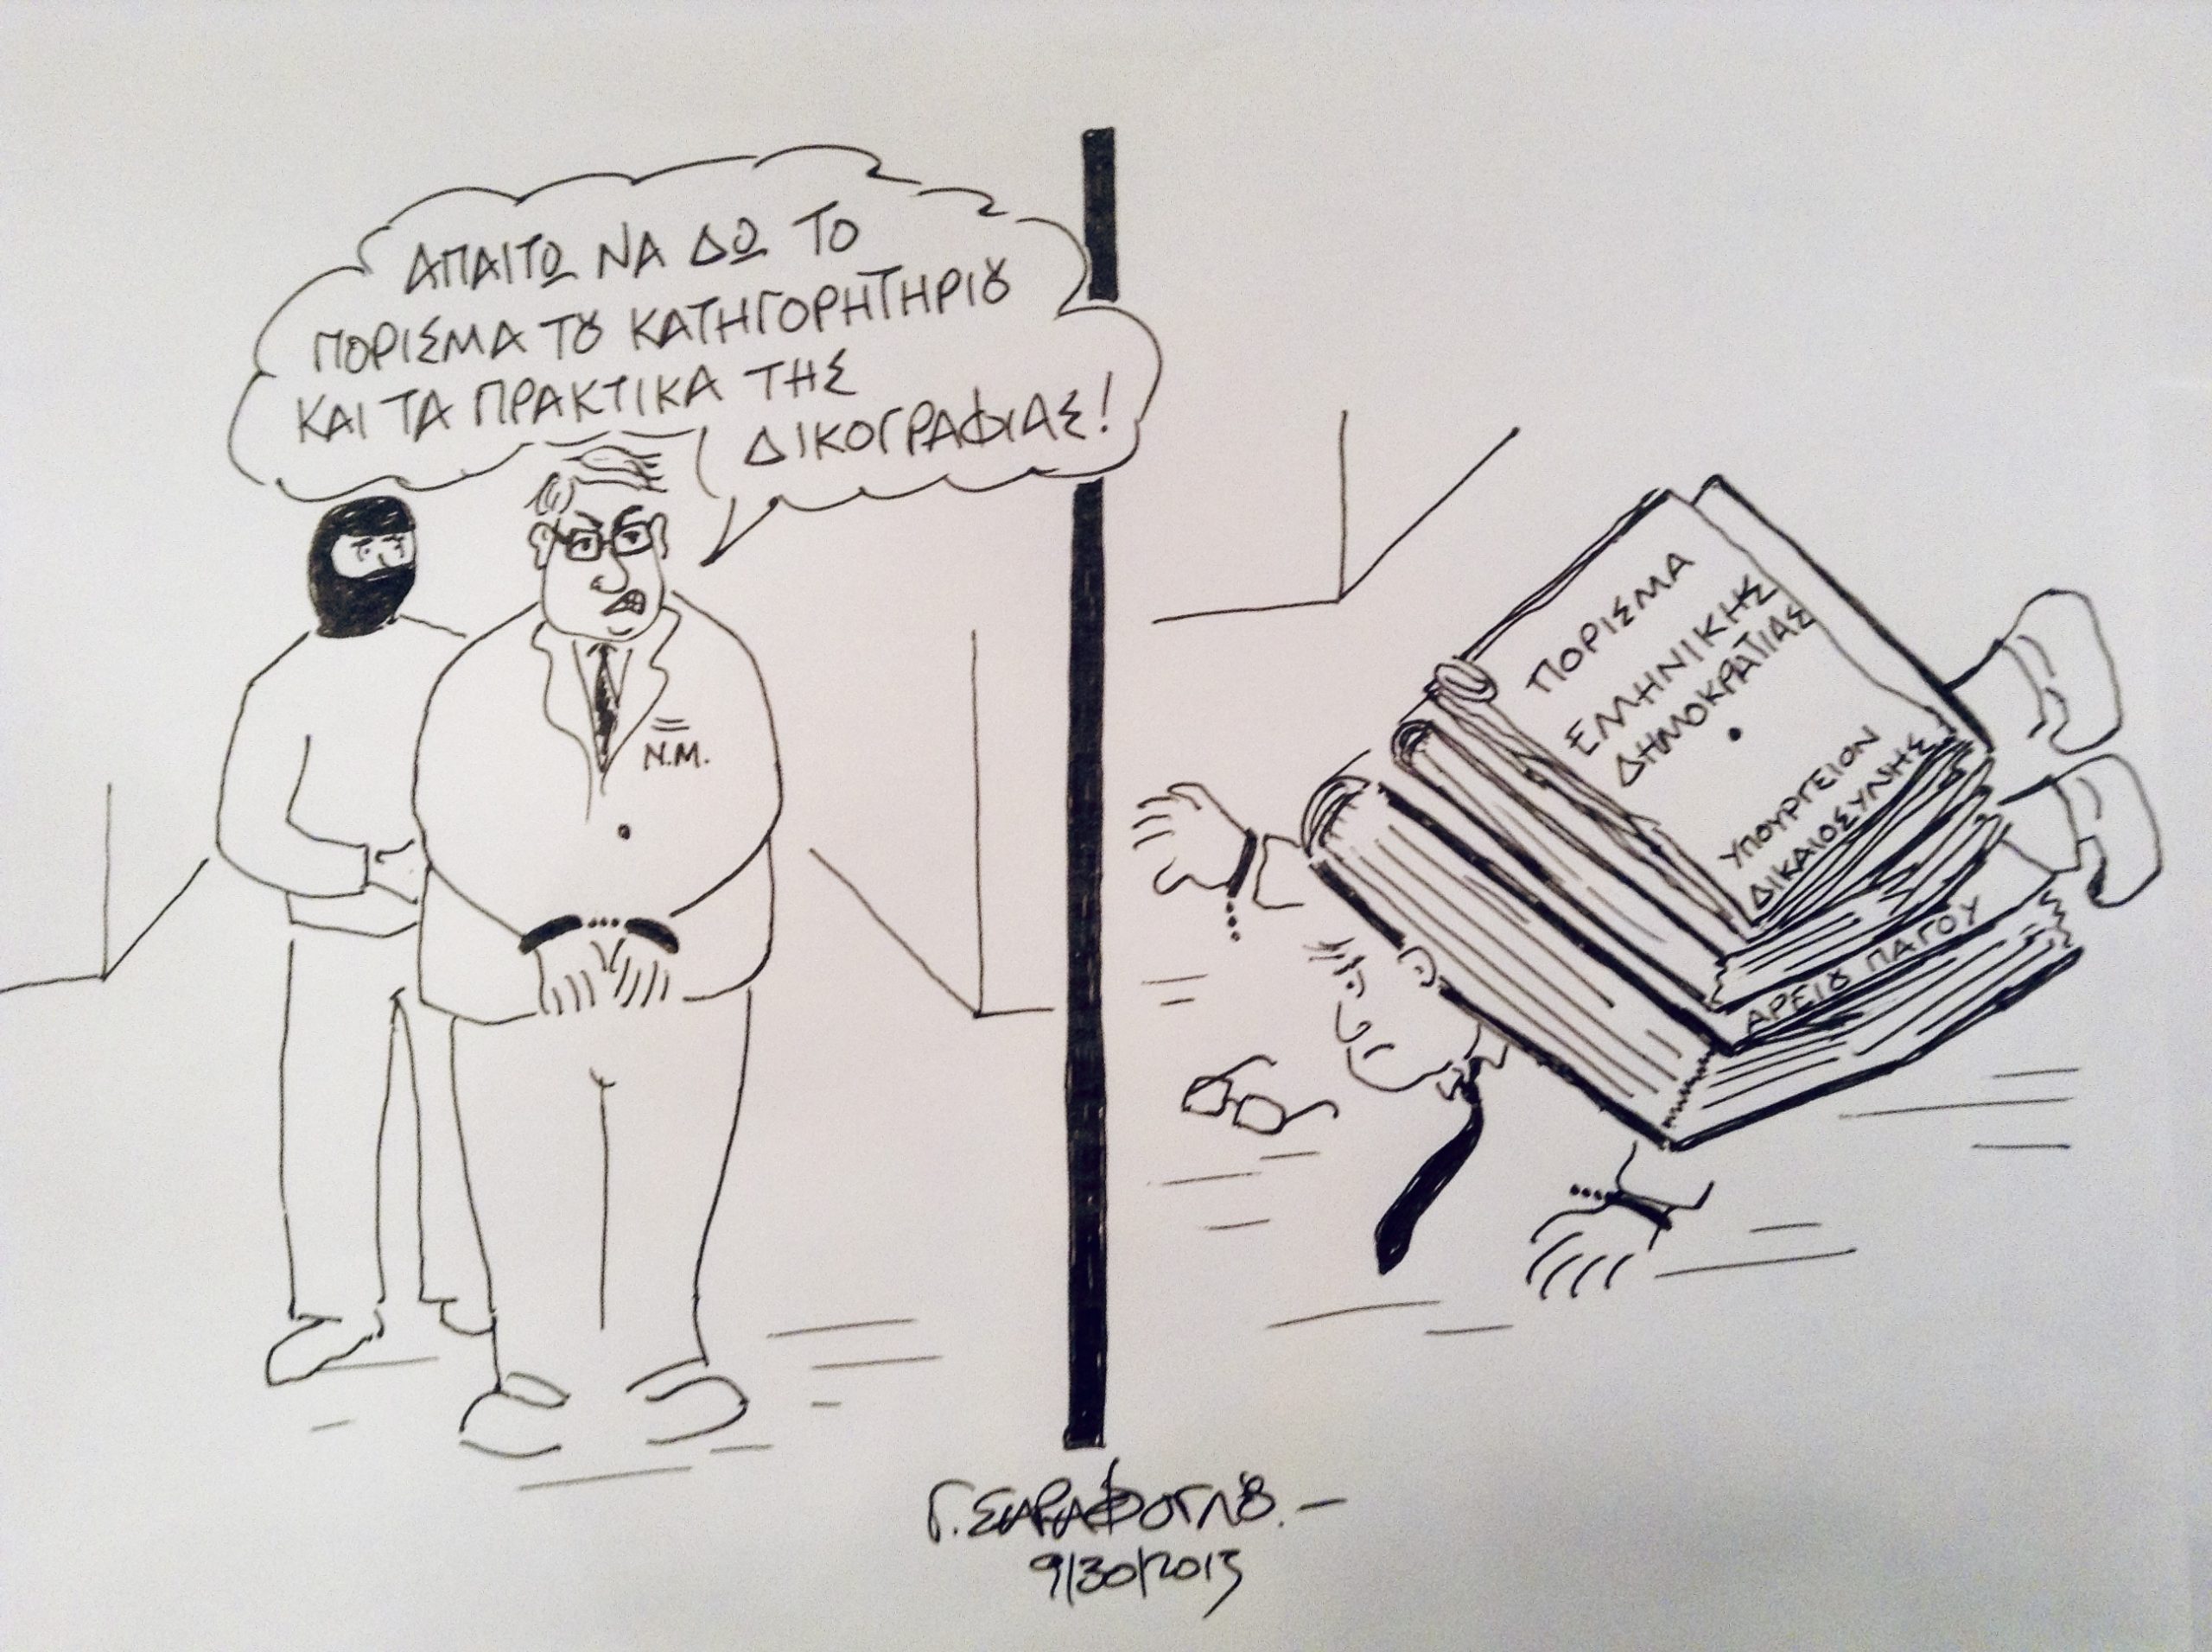 ΑΠΑΙΤΩ ΝΑ ΔΩ ΤΟ
ΠΟΡΙΣΜΑ Τȣ ΚΑΤΗΓΟΡΗΤΗΡΙȣ
ΚΑΙ ΤΑ ΠΡΑΚΤΙΚΑ ΤΗΣ
ΔΙΚΟΓΡΑΦΙΑΣ!
Ν.Μ.
ΠΟΡΙΣΜΑ
ΕΛΛΗΝΙΚΗΣ
ΔΗΜΟΚΡΑΤΙΑΣ
•
ΥΠΟΥΡΓΕΙΟΝ
ΔΙΚΑΙΟΣΥΝΗΣ
ΑΡΕΙȣ ΠΑΓΟΥ
Γ. ΣΑΡΑΦΟΓΛȣ.—
9/30/2013